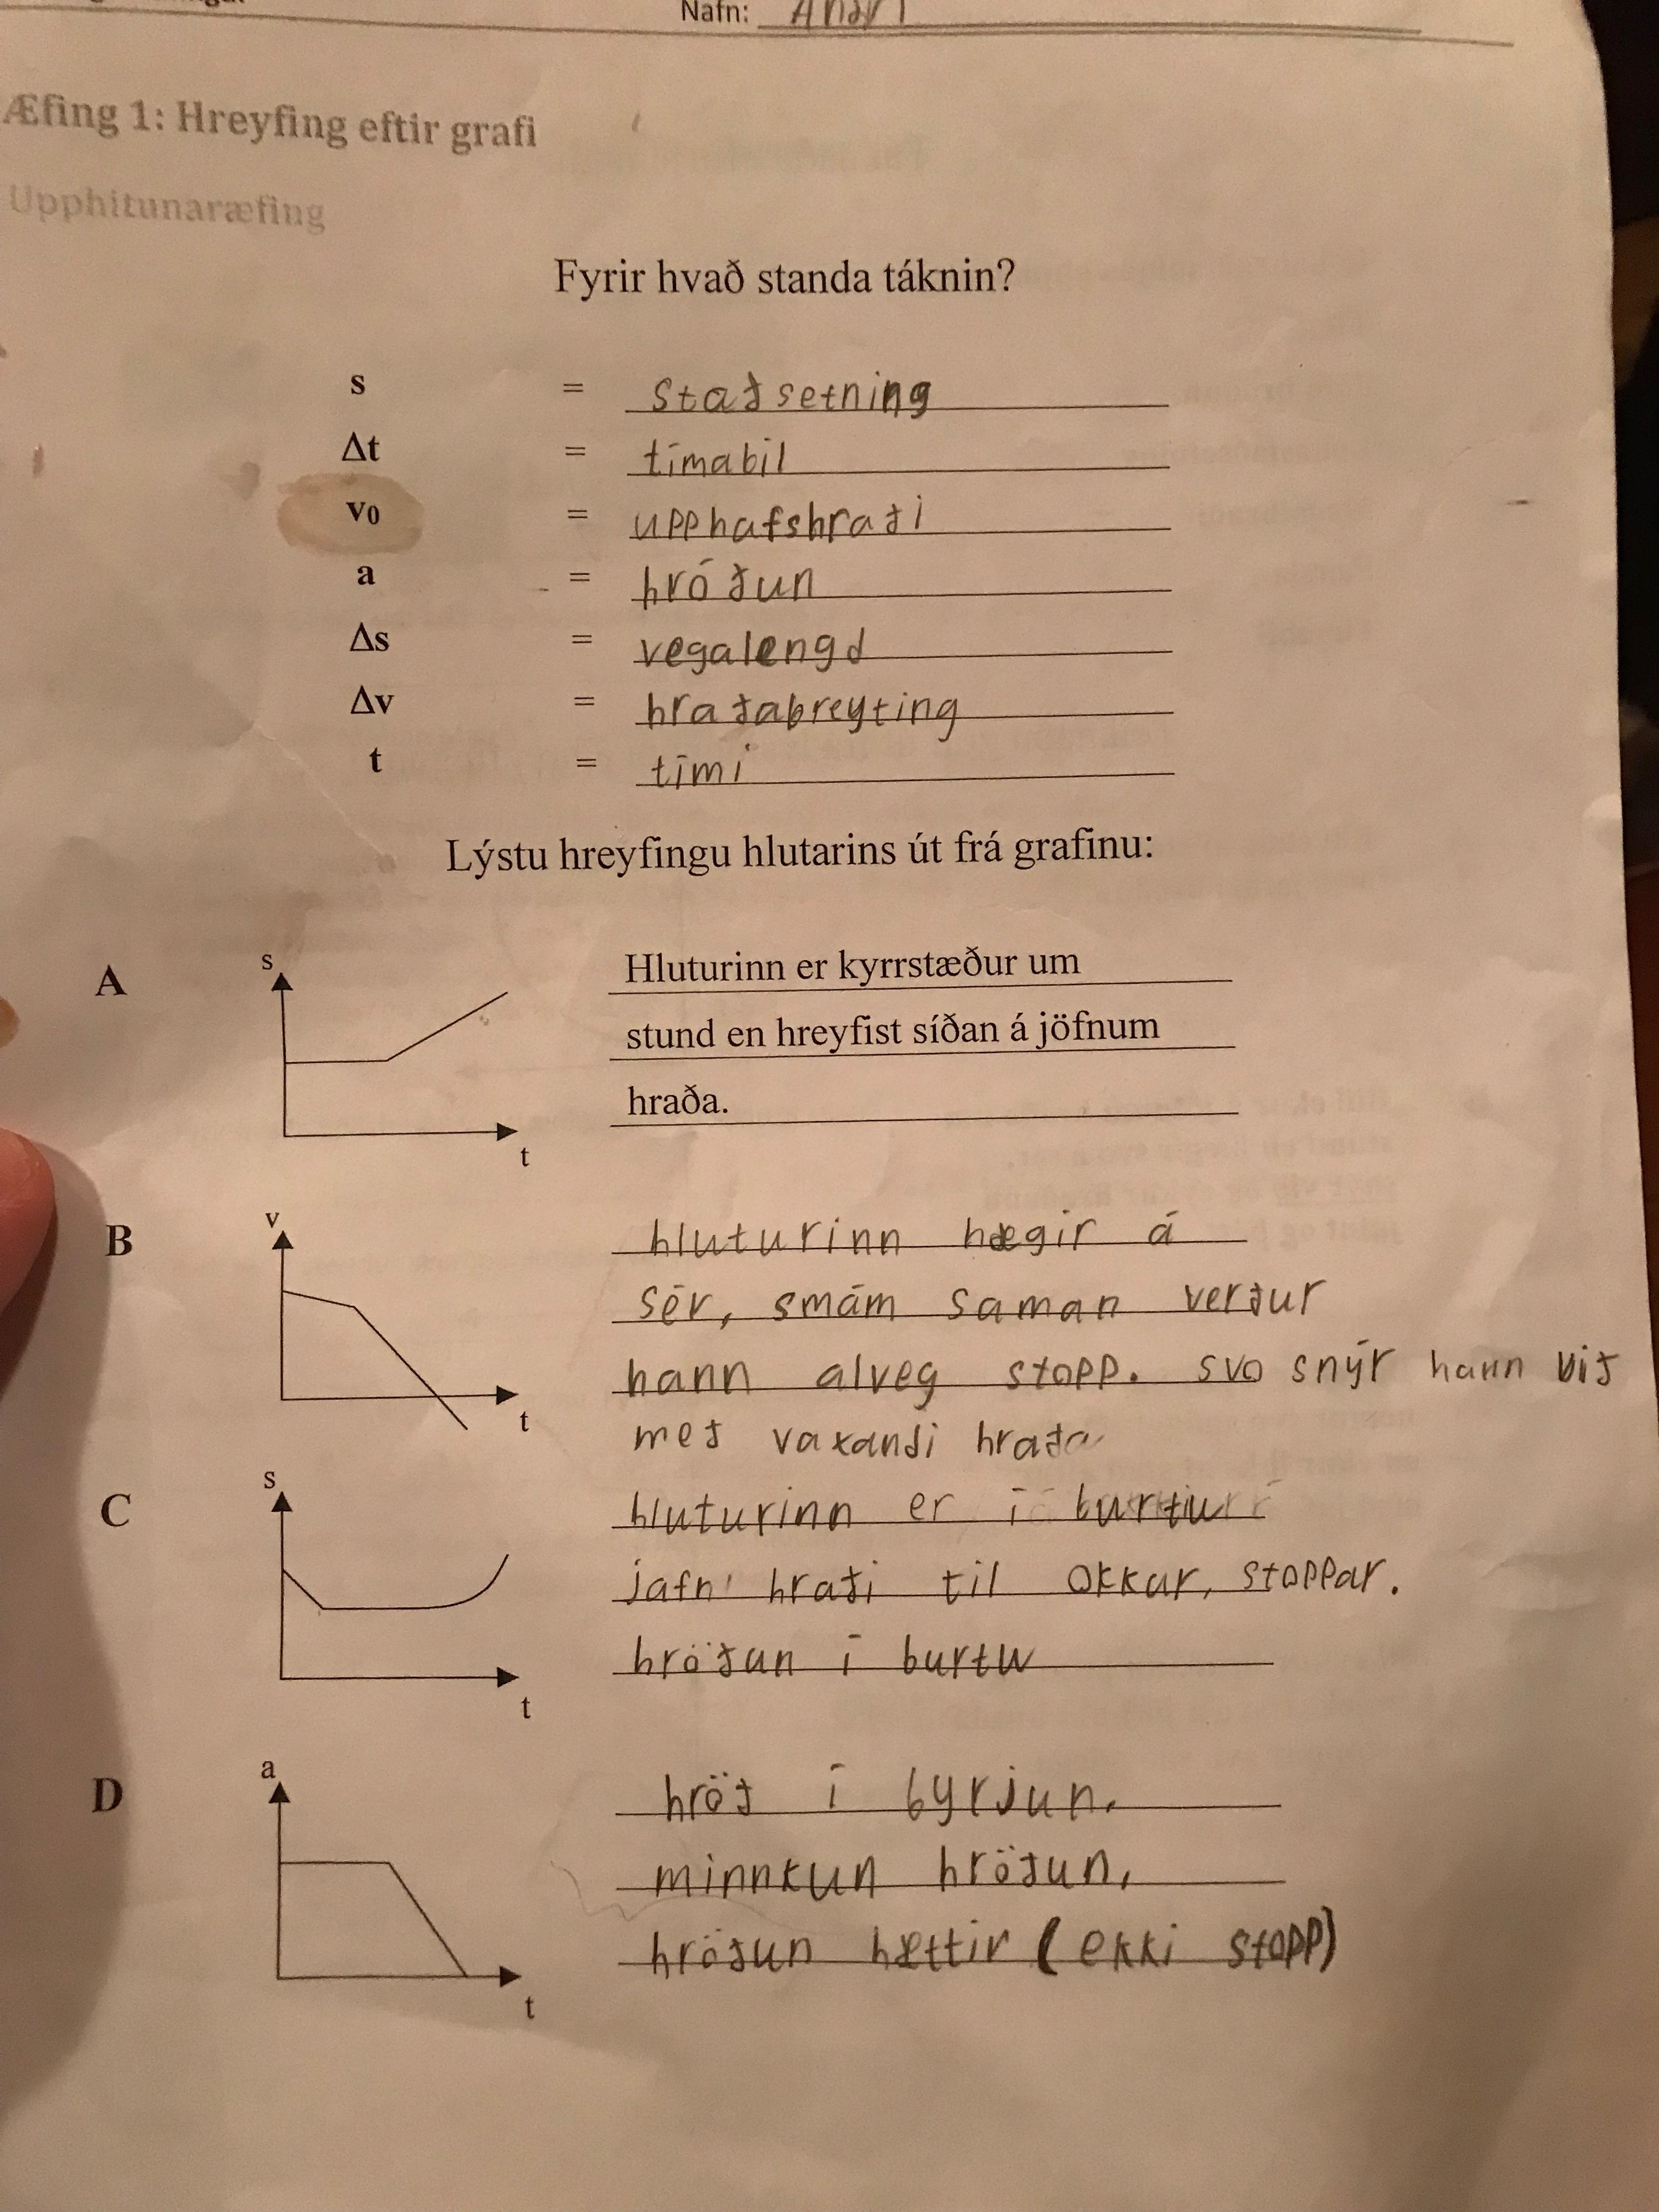 Nafn: Andri
Æfing 1: Hreyfing eftir grafi
Upphitunaræfing
Fyrir hvað standa táknin?
s = staðsetning
Δt = tímabil
v0 = upphafshraði
a = hróðun
Δs = vegalengd
Δv = hraðabreyting
t = tími
Lýstu hreyfingu hlutarins út frá grafinu:
A
s
t
Hluturinn er kyrrstæður um
stund en hreyfist síðan á jöfnum
hraða.
B
v
t
hluturinn hægir á
sér, smám saman verður
hann alveg stopp. svo snýr hann við
með vaxandi hraða
C
s
t
hluturinn er í burtu
jafn hraði til okkar, stoppar.
hröðun í burtu
D
a
t
hröð í byrjun.
minnkun hröðun,
hröðun hættir (ekki stopp)